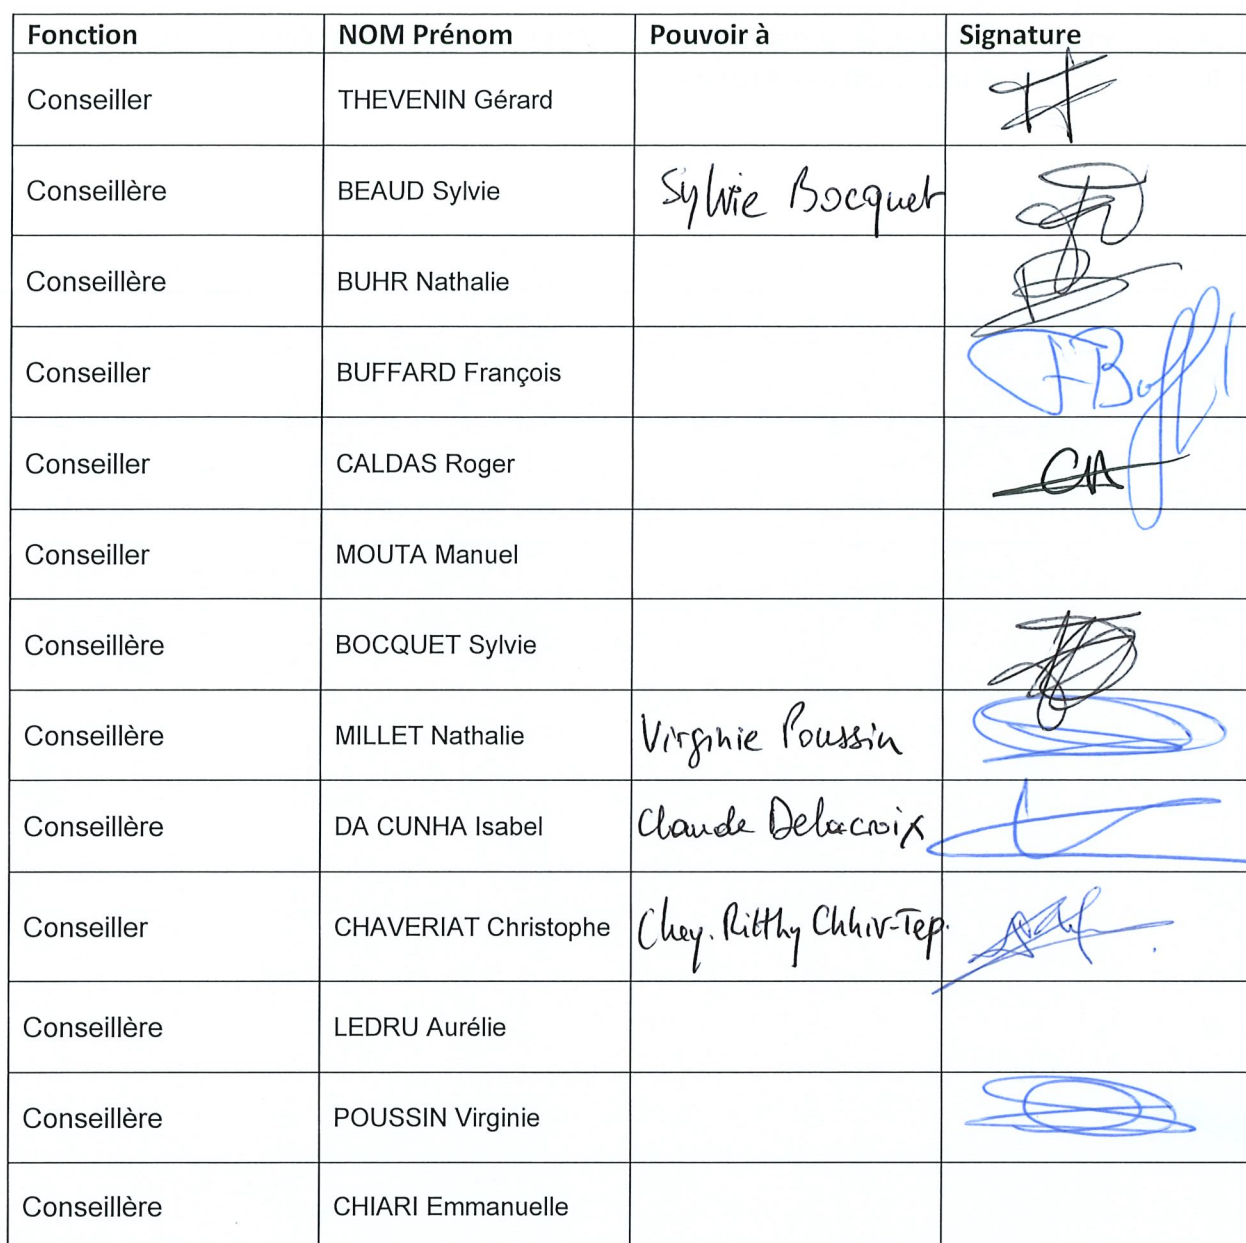 Fonction NOM Prénom Pouvoir à Signature
Conseiller THEVENIN Gérard
Conseillère BEAUD Sylvie Sylvie Bocquet
Conseillère BUHR Nathalie
Conseiller BUFFARD François FBuff
Conseiller CALDAS Roger CA
Conseiller MOUTA Manuel
Conseillère BOCQUET Sylvie
Conseillère MILLET Nathalie Virginie Poussin
Conseillère DA CUNHA Isabel Claude Delacroix
Conseiller CHAVERIAT Christophe Chey. Ritthy Chhiv-Tep.
Conseillère LEDRU Aurélie
Conseillère POUSSIN Virginie
Conseillère CHIARI Emmanuelle